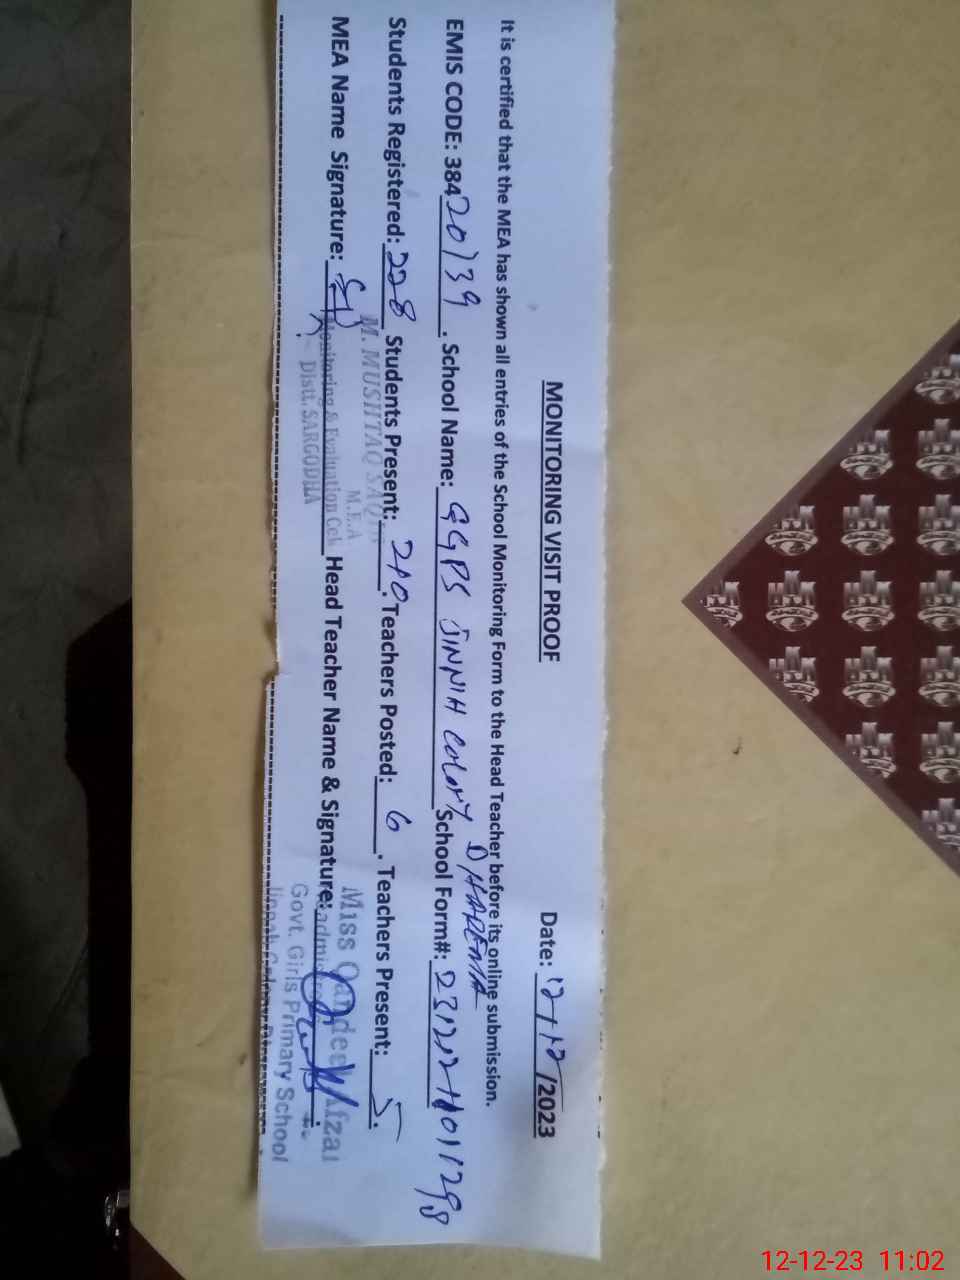 MONITORING VISIT PROOF
Date: 12-12/2023
It is certified that the MEA has shown all entries of the School Monitoring Form to the Head Teacher before its online submission.
EMIS CODE: 38420139. School Name: GGPS JINNIH COLONY DHAREMA School Form#:
Students Registered: 228 Students Present: 210. Teachers Posted: 6. Teachers Present: 5.
M. MUSHTAQ SAQIB
M.E.A
MEA Name Signature: Head Teacher Name & Signature:
Monitoring & Evaluation Cell
Distt. SARGODHA
Miss Afzal
Govt. Girls Primary School
12-12-23 11:02